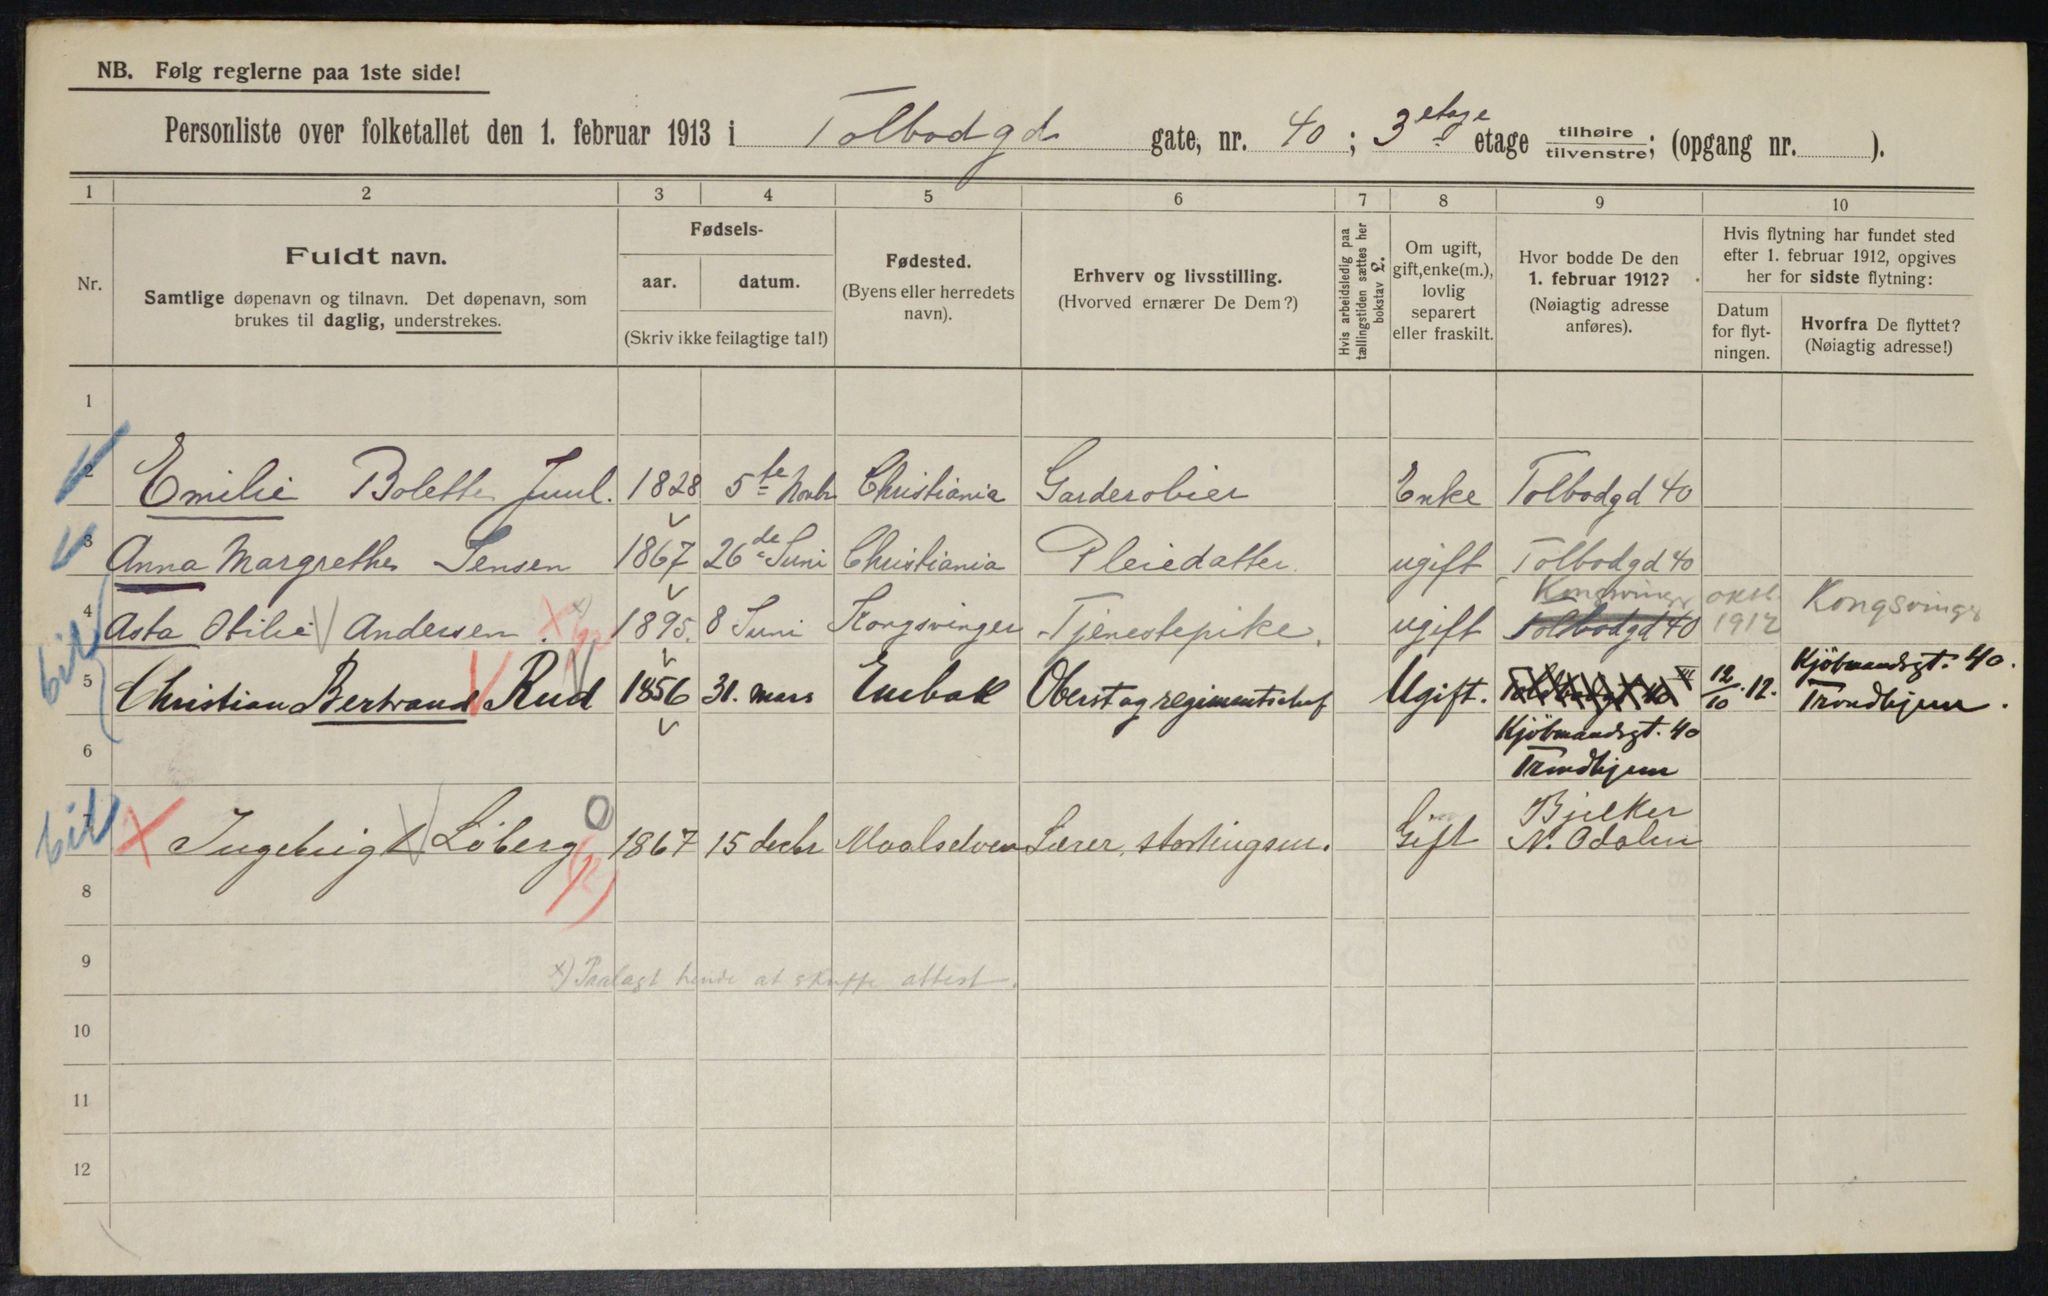 NB. Følg reglerne paa 1ste side!
Personliste over folketallet den 1. februar 1913 i Tolbodgd gate, nr. 40 ; 3 etage etage tilhøire tilvenstre; (opgang nr. ).
1 2 3 4 5 6 7 8 9 10
Nr.
Fuldt navn.
Samtlige døpenavn og tilnavn. Det døpenavn, som
brukes til daglig, understrekes.
Fødsels-
aar. datum.
(Skriv ikke feilagtige tal!)
Fødested.
(Byens eller herredets
navn).
Erhverv og livsstilling.
(Hvorved ernærer De Dem?)
Hvis arbeidsledig paa
tællingstiden sættes her
bokstav L.
Om ugift,
gift, enke(m.),
lovlig
separert
eller fraskilt.
Hvor bodde De den
1. februar 1912?
(Nøiagtig adresse
anføres).
Hvis flytning har fundet sted
efter 1. februar 1912, opgives
her for sidste flytning:
Datum
for flyt-
ningen.
Hvorfra De flyttet?
(Nøiagtig adresse!)
1
2 Emilie Bolette Juul. 1828 5te Novbr Christiania Garderobier Enke Tolbodgd 40
3 Anna Margrethe Jensen 1867 26de Juni Christiania Pleiedatter. ugift Tolbodgd 40
4 Asta Otilie Andersen. x) 1895. 8 Juni Kongsvinger Tjenestepike. ugift Tolbodgd 40 Kongsvinger oktb. 1912 Kongsvinger
bil
5 Christian Bertrand Rud 1856 31. mars Enebak Oberst og regimentschef Ugift. Toldbodgt 40 III 12/10. 12. Kjöbmandsgt. 40.
Trondhjem.
6 Kjöbmandsgt. 40
Trondhjem
bil
7 Ingebrigt Løberg 0 1867 15 decbr Maalselven Lærer, stortingsm. Gift Bjelker
N. Odalen
8
9 x) Paalagt hende at skaffe attest.
10
11
12